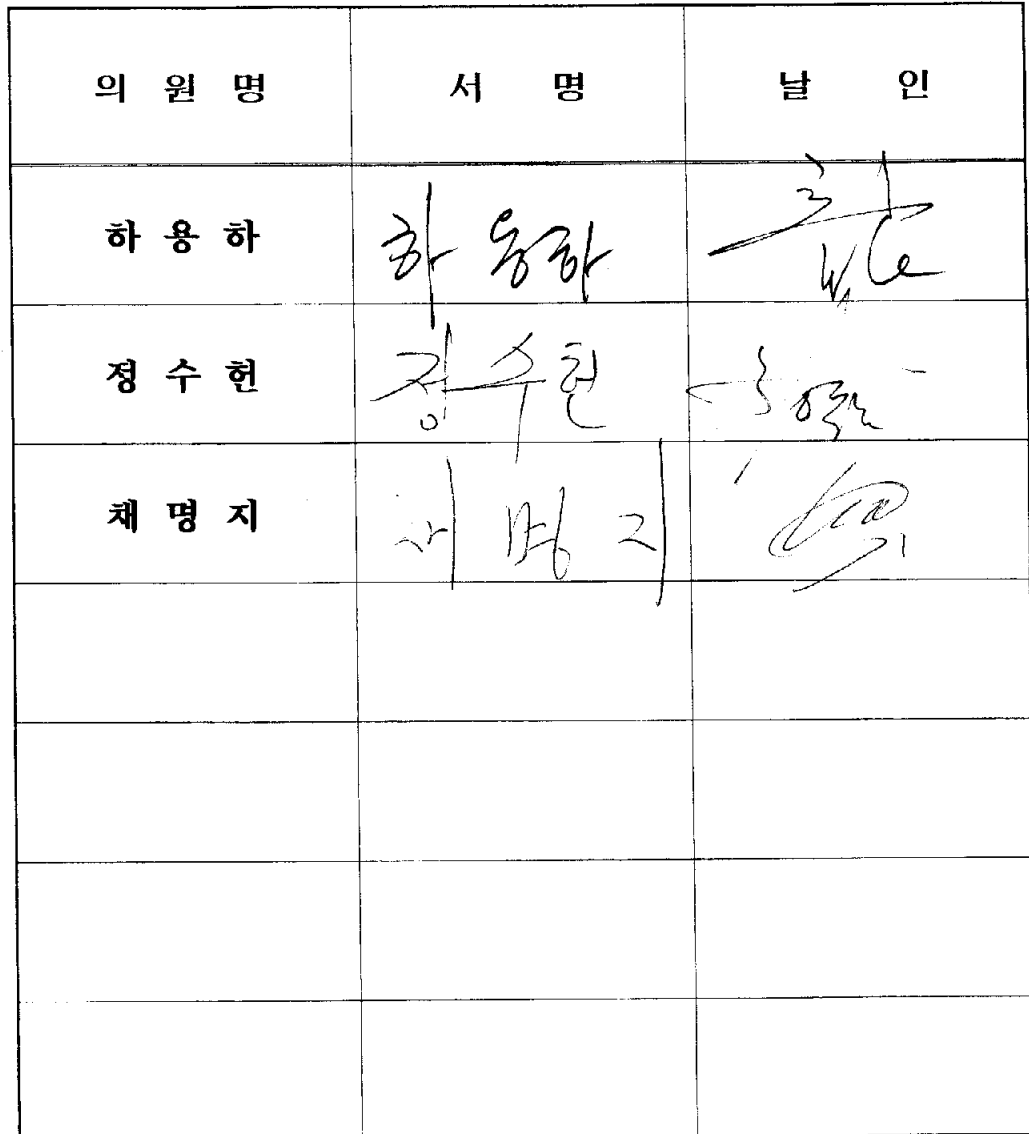 의 원 명 서 명 날 인
하 용 하 하 용 하
정 수 헌 정 수 헌
채 명 지 채 명 지